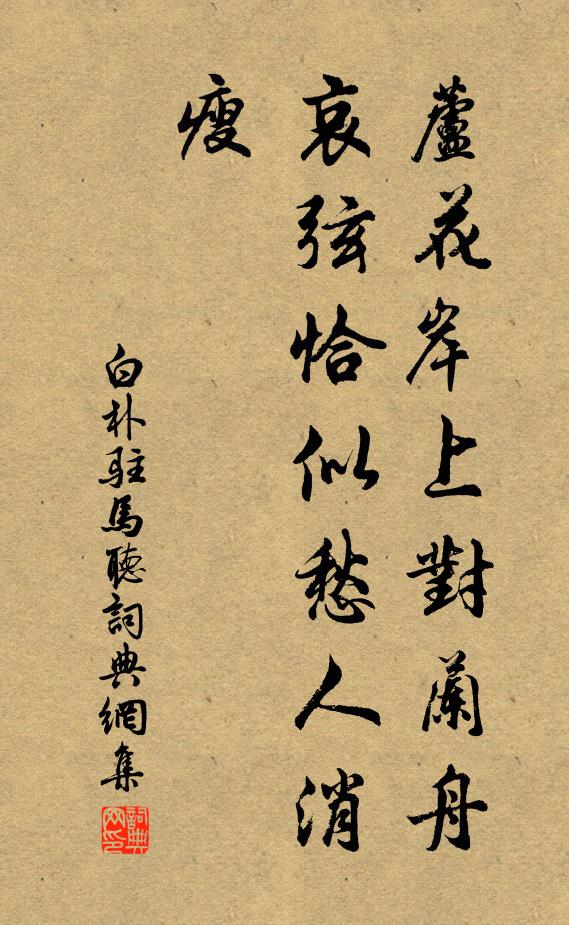 蘆花岸上對蘭舟
哀弦恰似愁人消
瘦
白朴駐馬聽詞典網集
詞典网印